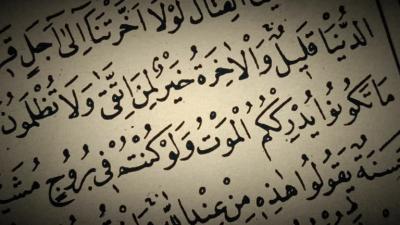 الْقِتَالَ لَوْلَا أَخَّرْتَنَا إِلَىٰ أَجَلٍ
الدُّنْيَا قَلِيلٌ وَالْآخِرَةُ خَيْرٌ لِمَنِ اتَّقَىٰ وَلَا تُظْلَمُونَ
مَا تَكُونُوا يُدْرِكْكُمُ الْمَوْتُ وَلَوْ كُنْتُمْ فِي بُرُوجٍ
حَسَنَةٌ يَقُولُوا هَٰذِهِ مِنْ عِنْدِ اللَّهِ